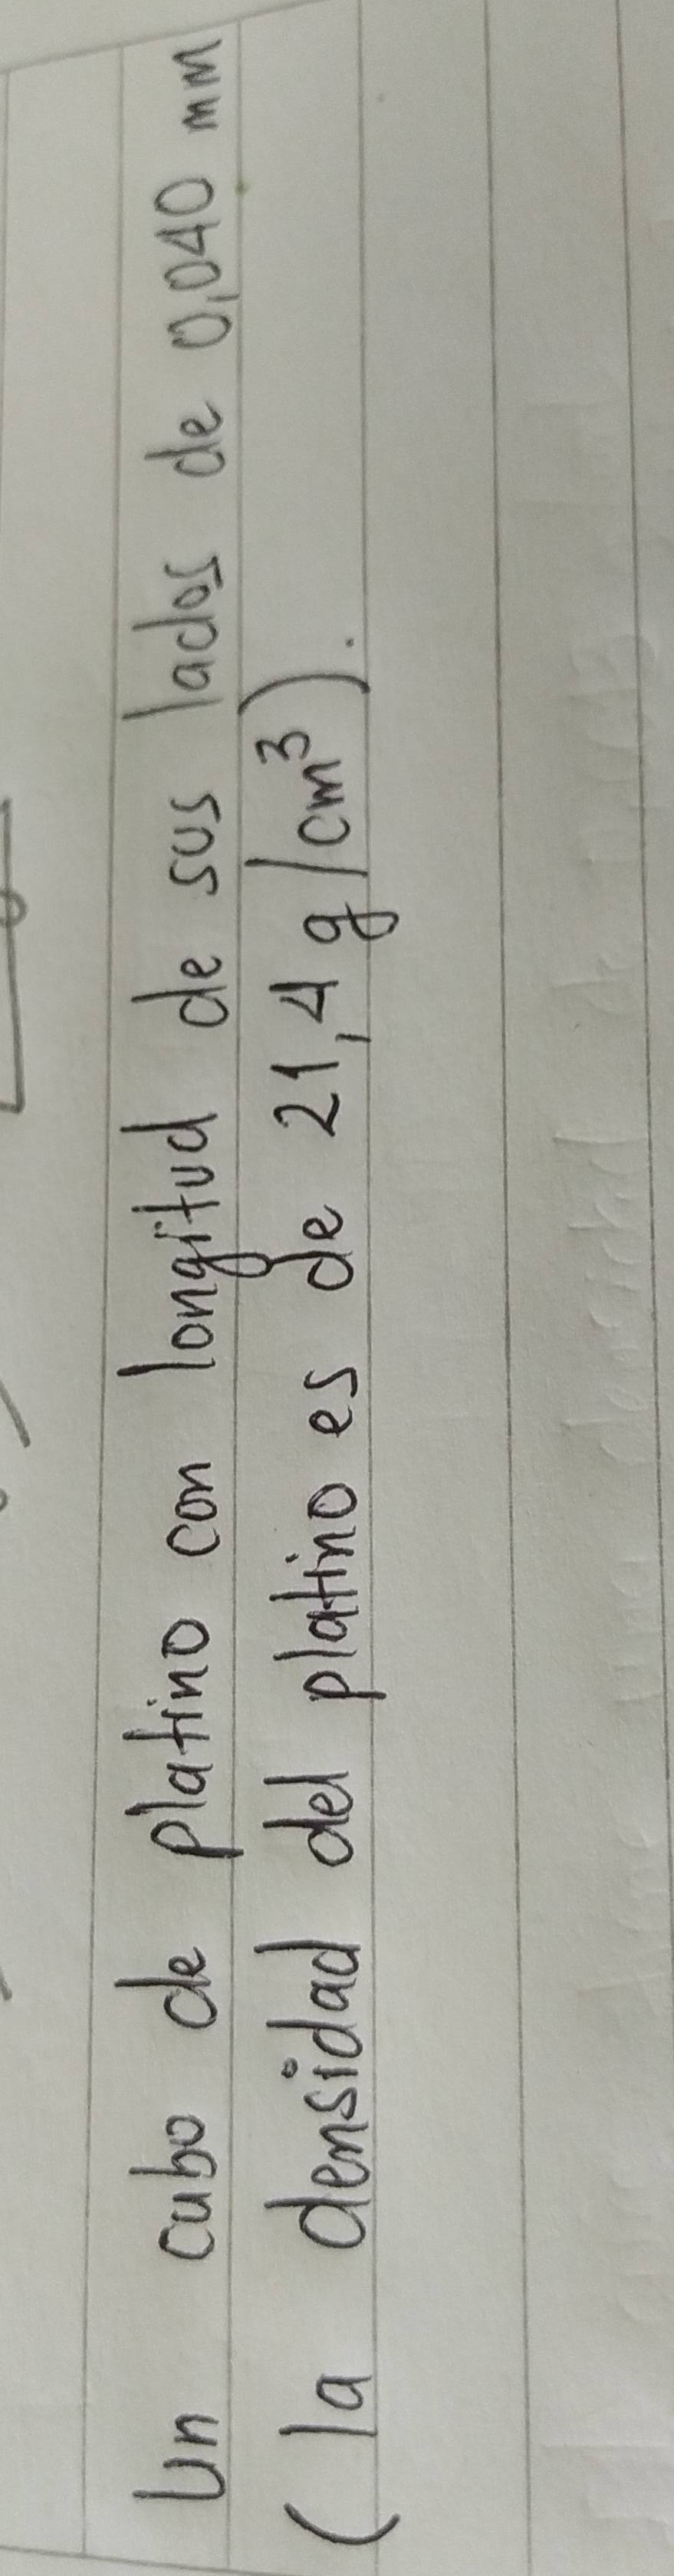 Un cubo de platino con longitud de sus lados de 0,040 mm
(la densidad del platino es de 21,4 g/cm³).